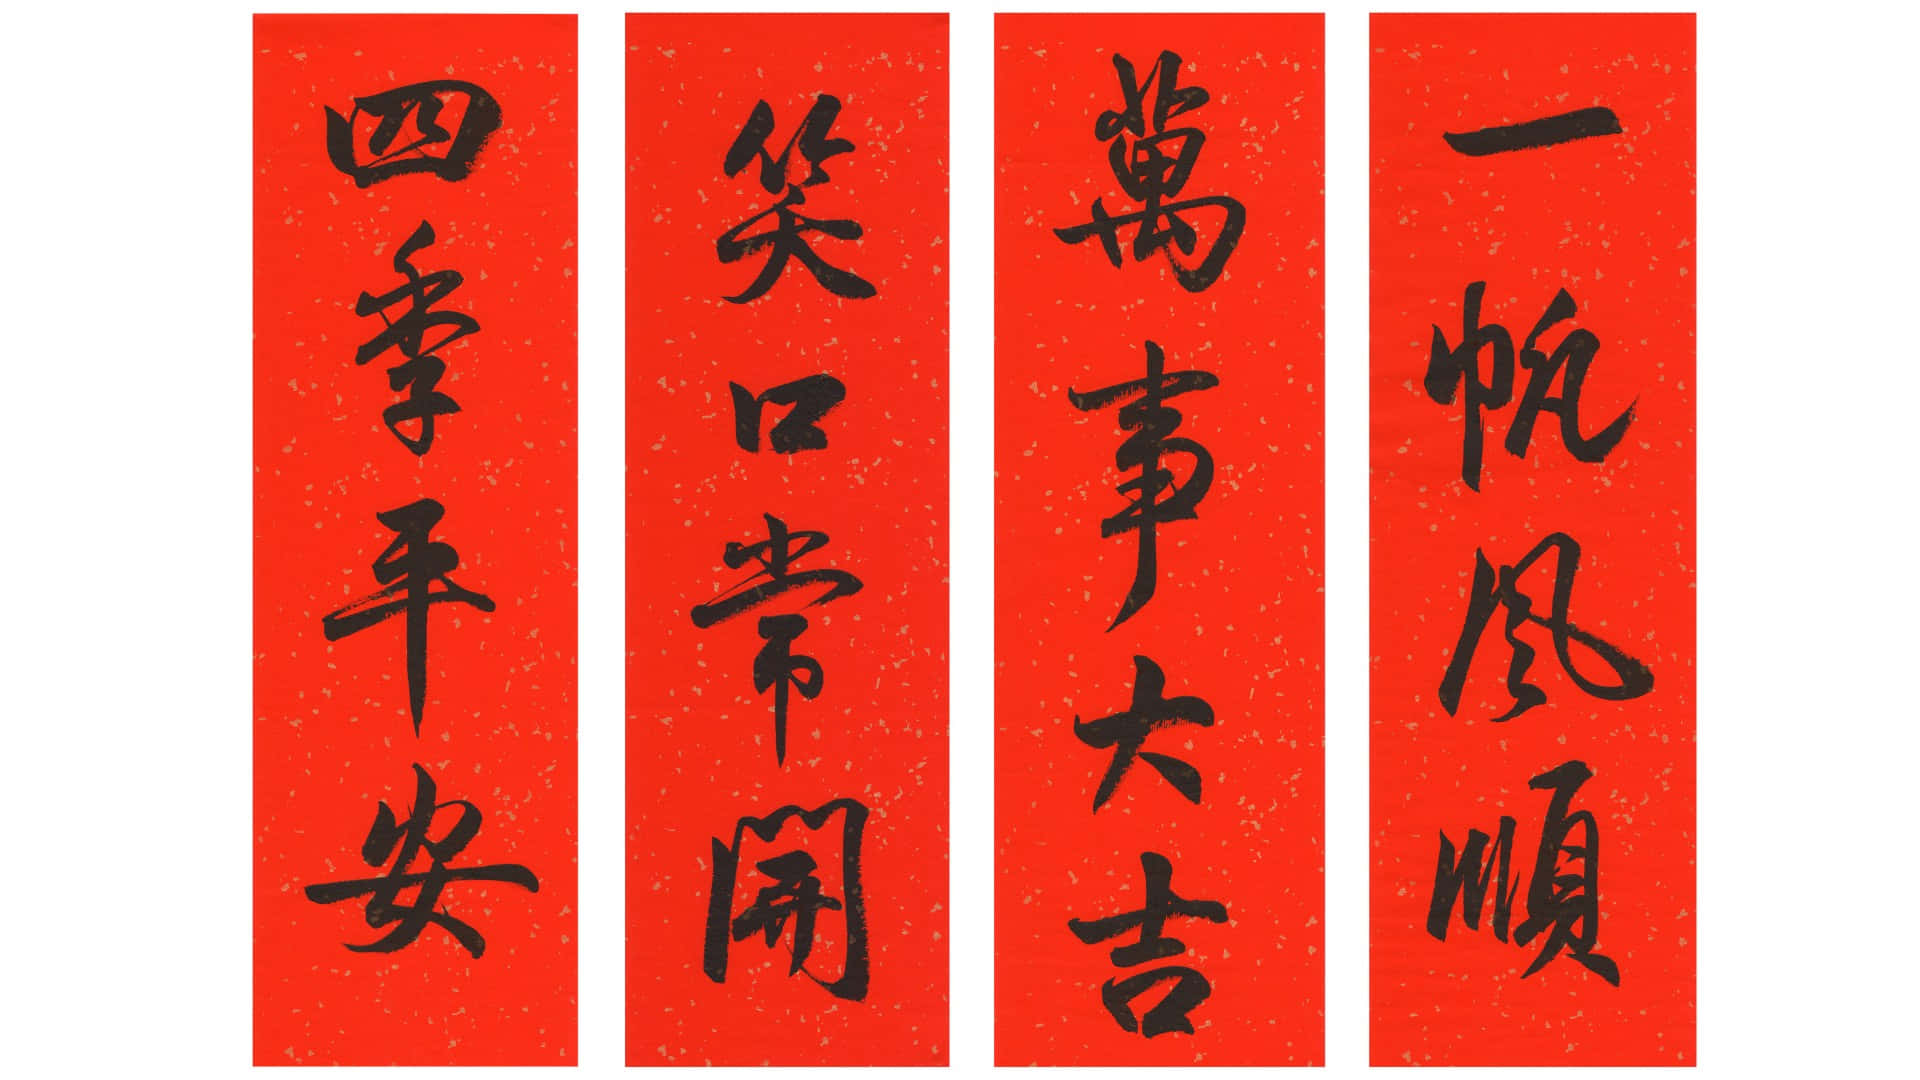 一帆风順
萬事大吉
笑口常開
四季平安